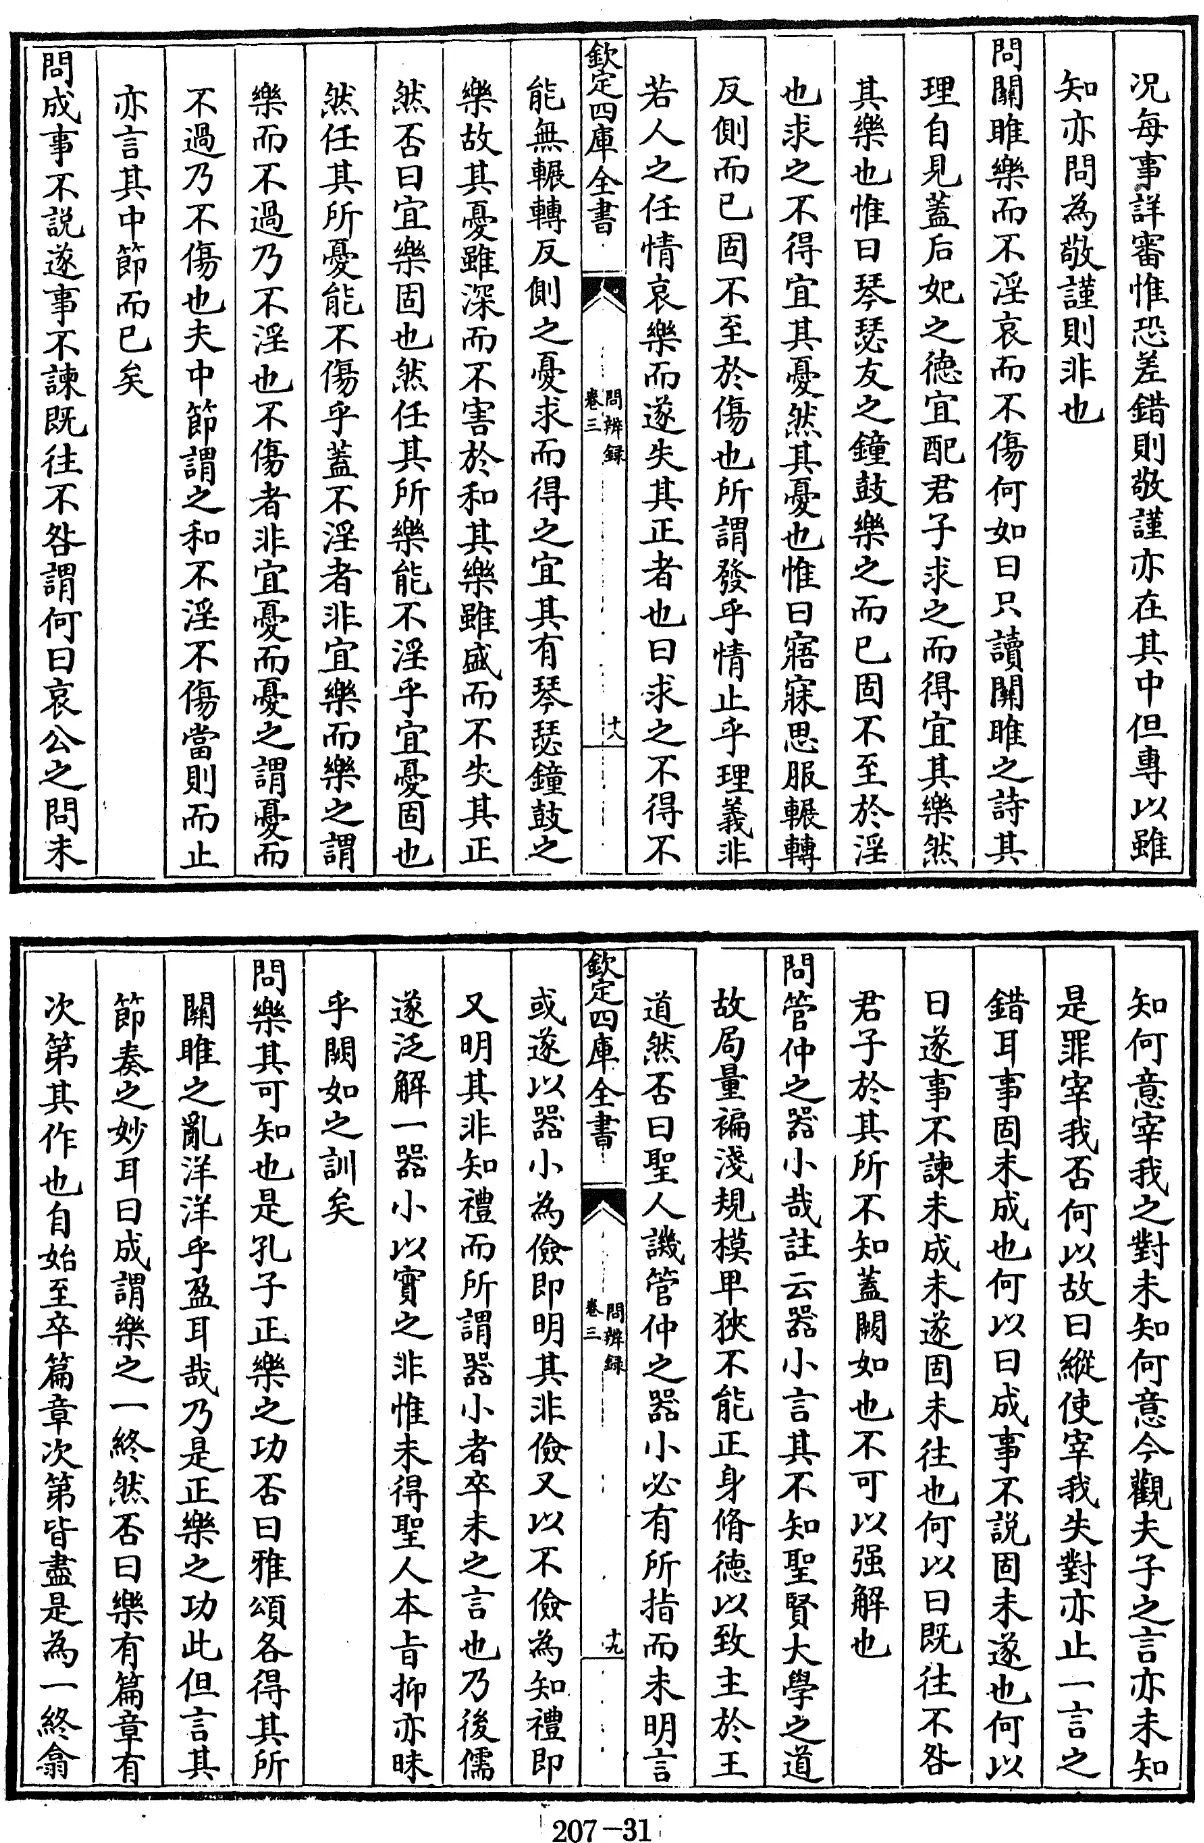 况每事詳審惟恐差錯則敬謹亦在其中但專以雖
知亦問為敬謹則非也
問關雎樂而不淫哀而不傷何如曰只讀關雎之詩其
理自見蓋后妃之德宜配君子求之而得宜其樂然
其樂也惟曰琴瑟友之鐘鼓樂之而已固不至於淫
也求之不得宜其憂然其憂也惟曰寤寐思服輾轉
反側而已固不至於傷也所謂發乎情止乎理義非
若人之任情哀樂而遂失其正者也曰求之不得不
欽定四庫全書
問辨錄
卷三
十八
能無輾轉反側之憂求而得之宜其有琴瑟鐘鼓之
樂故其憂雖深而不害於和其樂雖盛而不失其正
然否曰宜樂固也然任其所樂能不淫乎宜憂固也
然任其所憂能不傷乎蓋不淫者非宜樂而樂之謂
樂而不過乃不淫也不傷者非宜憂而憂之謂憂而
不過乃不傷也夫中節謂之和不淫不傷當則而止
亦言其中節而已矣
問成事不說遂事不諫既往不咎謂何曰哀公之問未
知何意宰我之對未知何意今觀夫子之言亦未知
是罪宰我否何以故曰縱使宰我失對亦止一言之
錯耳事固未成也何以曰成事不說固未遂也何以
曰遂事不諫未成未遂固未往也何以曰既往不咎
君子於其所不知蓋闕如也不可以强解也
問管仲之器小哉註云器小言其不知聖賢大學之道
故局量褊淺規模卑狹不能正身脩德以致主於王
道然否曰聖人譏管仲之器小必有所指而未明言
欽定四庫全書
問辨錄
卷三
十九
或遂以器小為儉即明其非儉又以不儉為知禮即
又明其非知禮而所謂器小者卒未之言也乃後儒
遂泛解一器小以實之非惟未得聖人本旨抑亦昧
乎闕如之訓矣
問樂其可知也是孔子正樂之功否曰雅頌各得其所
關雎之亂洋洋乎盈耳哉乃是正樂之功此但言其
節奏之妙耳曰成謂樂之一終然否曰樂有篇章有
次第其作也自始至卒篇章次第皆盡是為一終翕
207-31